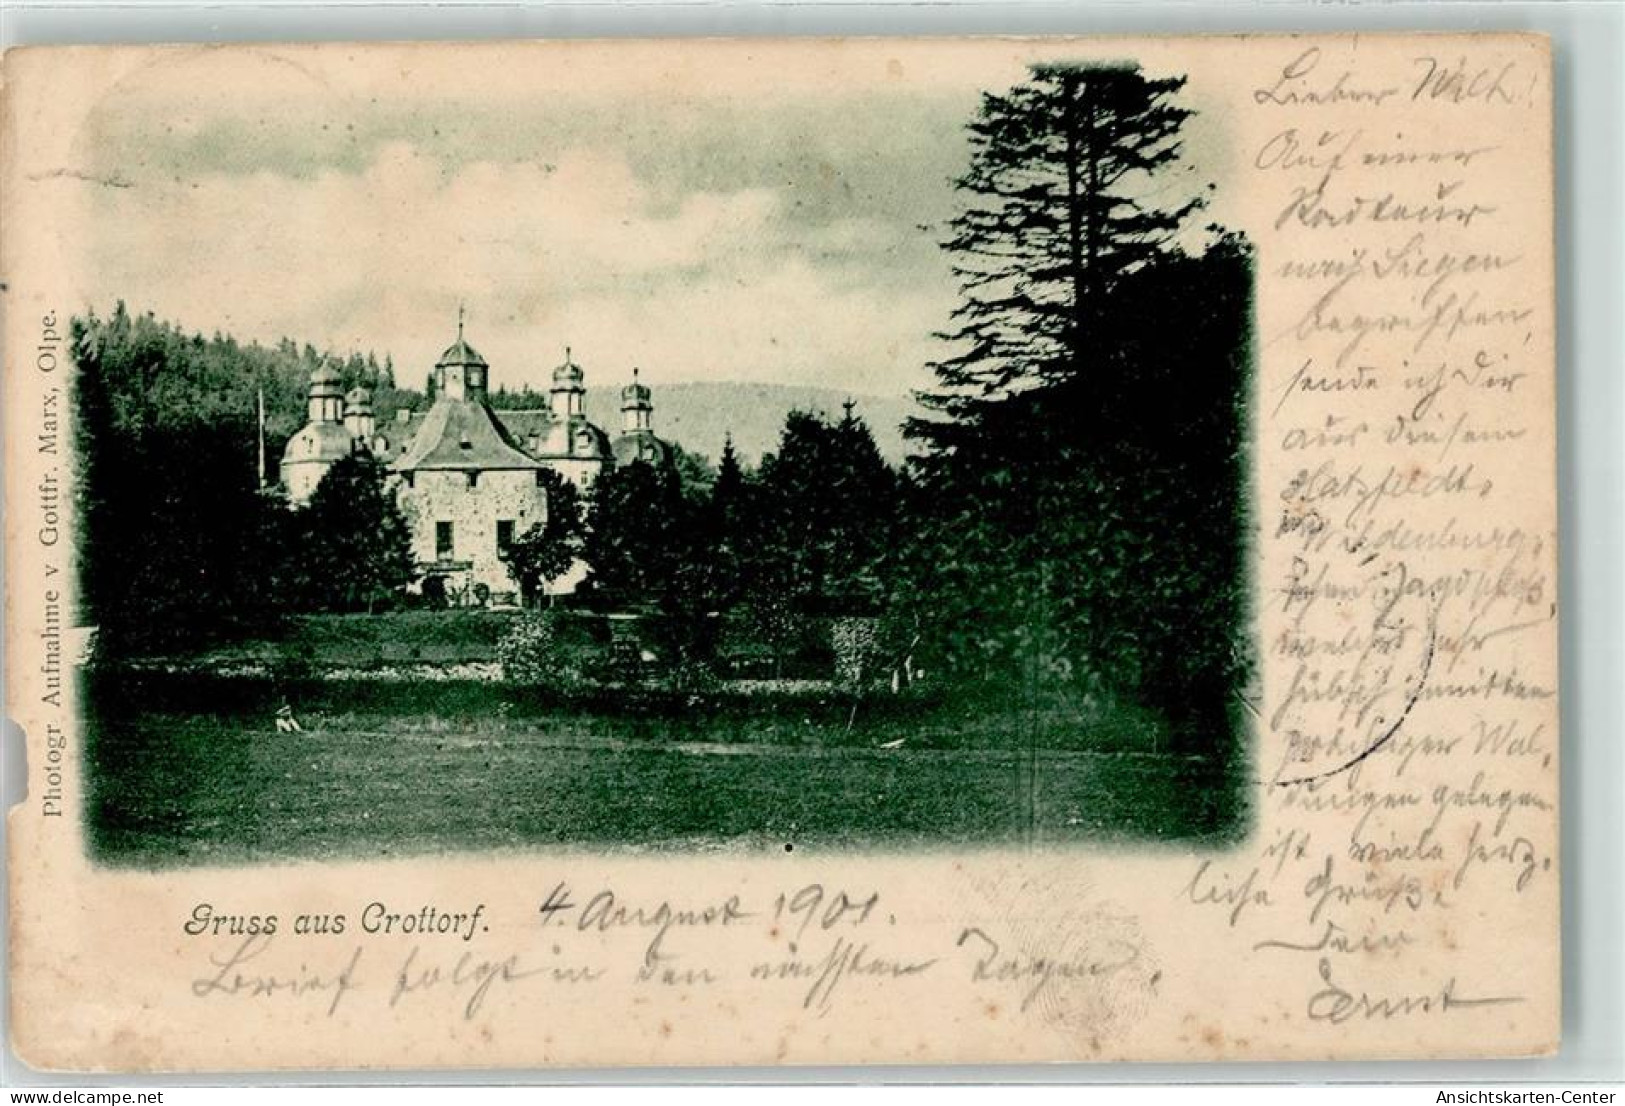 Lieber Web!
Auf einer
Radtour
nach Siegen
begriffen,
sende ich Dir
aus diesem
Hatzfeldt-
Wildenburg-
Jagdschloß,
welches sehr
hübsch inmitten
prächtiger Wal-
dungen gelegen
ist viele herz-
liche Grüße.
Dein
Ernst
Photogr Aufnahme v Gottfr. Marx, Olpe.
Gruss aus Crottorf. 4. August 1901.
Brief folgt in den nächsten Tagen.
delcampe.net
Ansichtskarten-Center